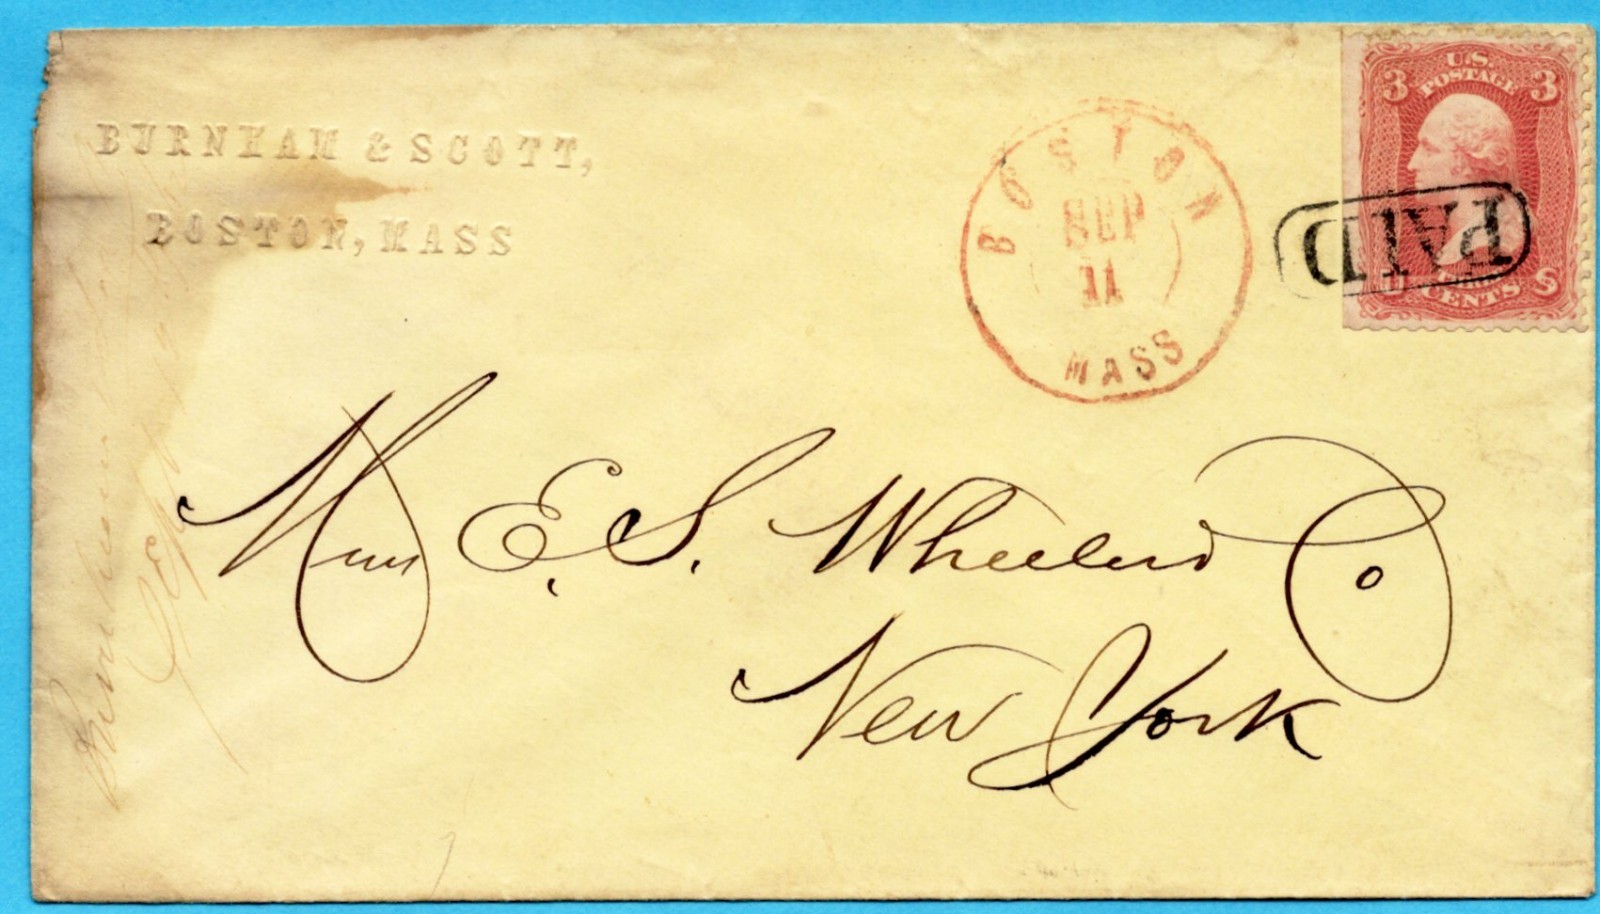 BURNHAM & SCOTT,
BOSTON, MASS
BOSTON
SEP
11
MASS
3 U.S. 3
POSTAGE
CENTS
PAID
E. S. Wheeler & Co
New York
Sept